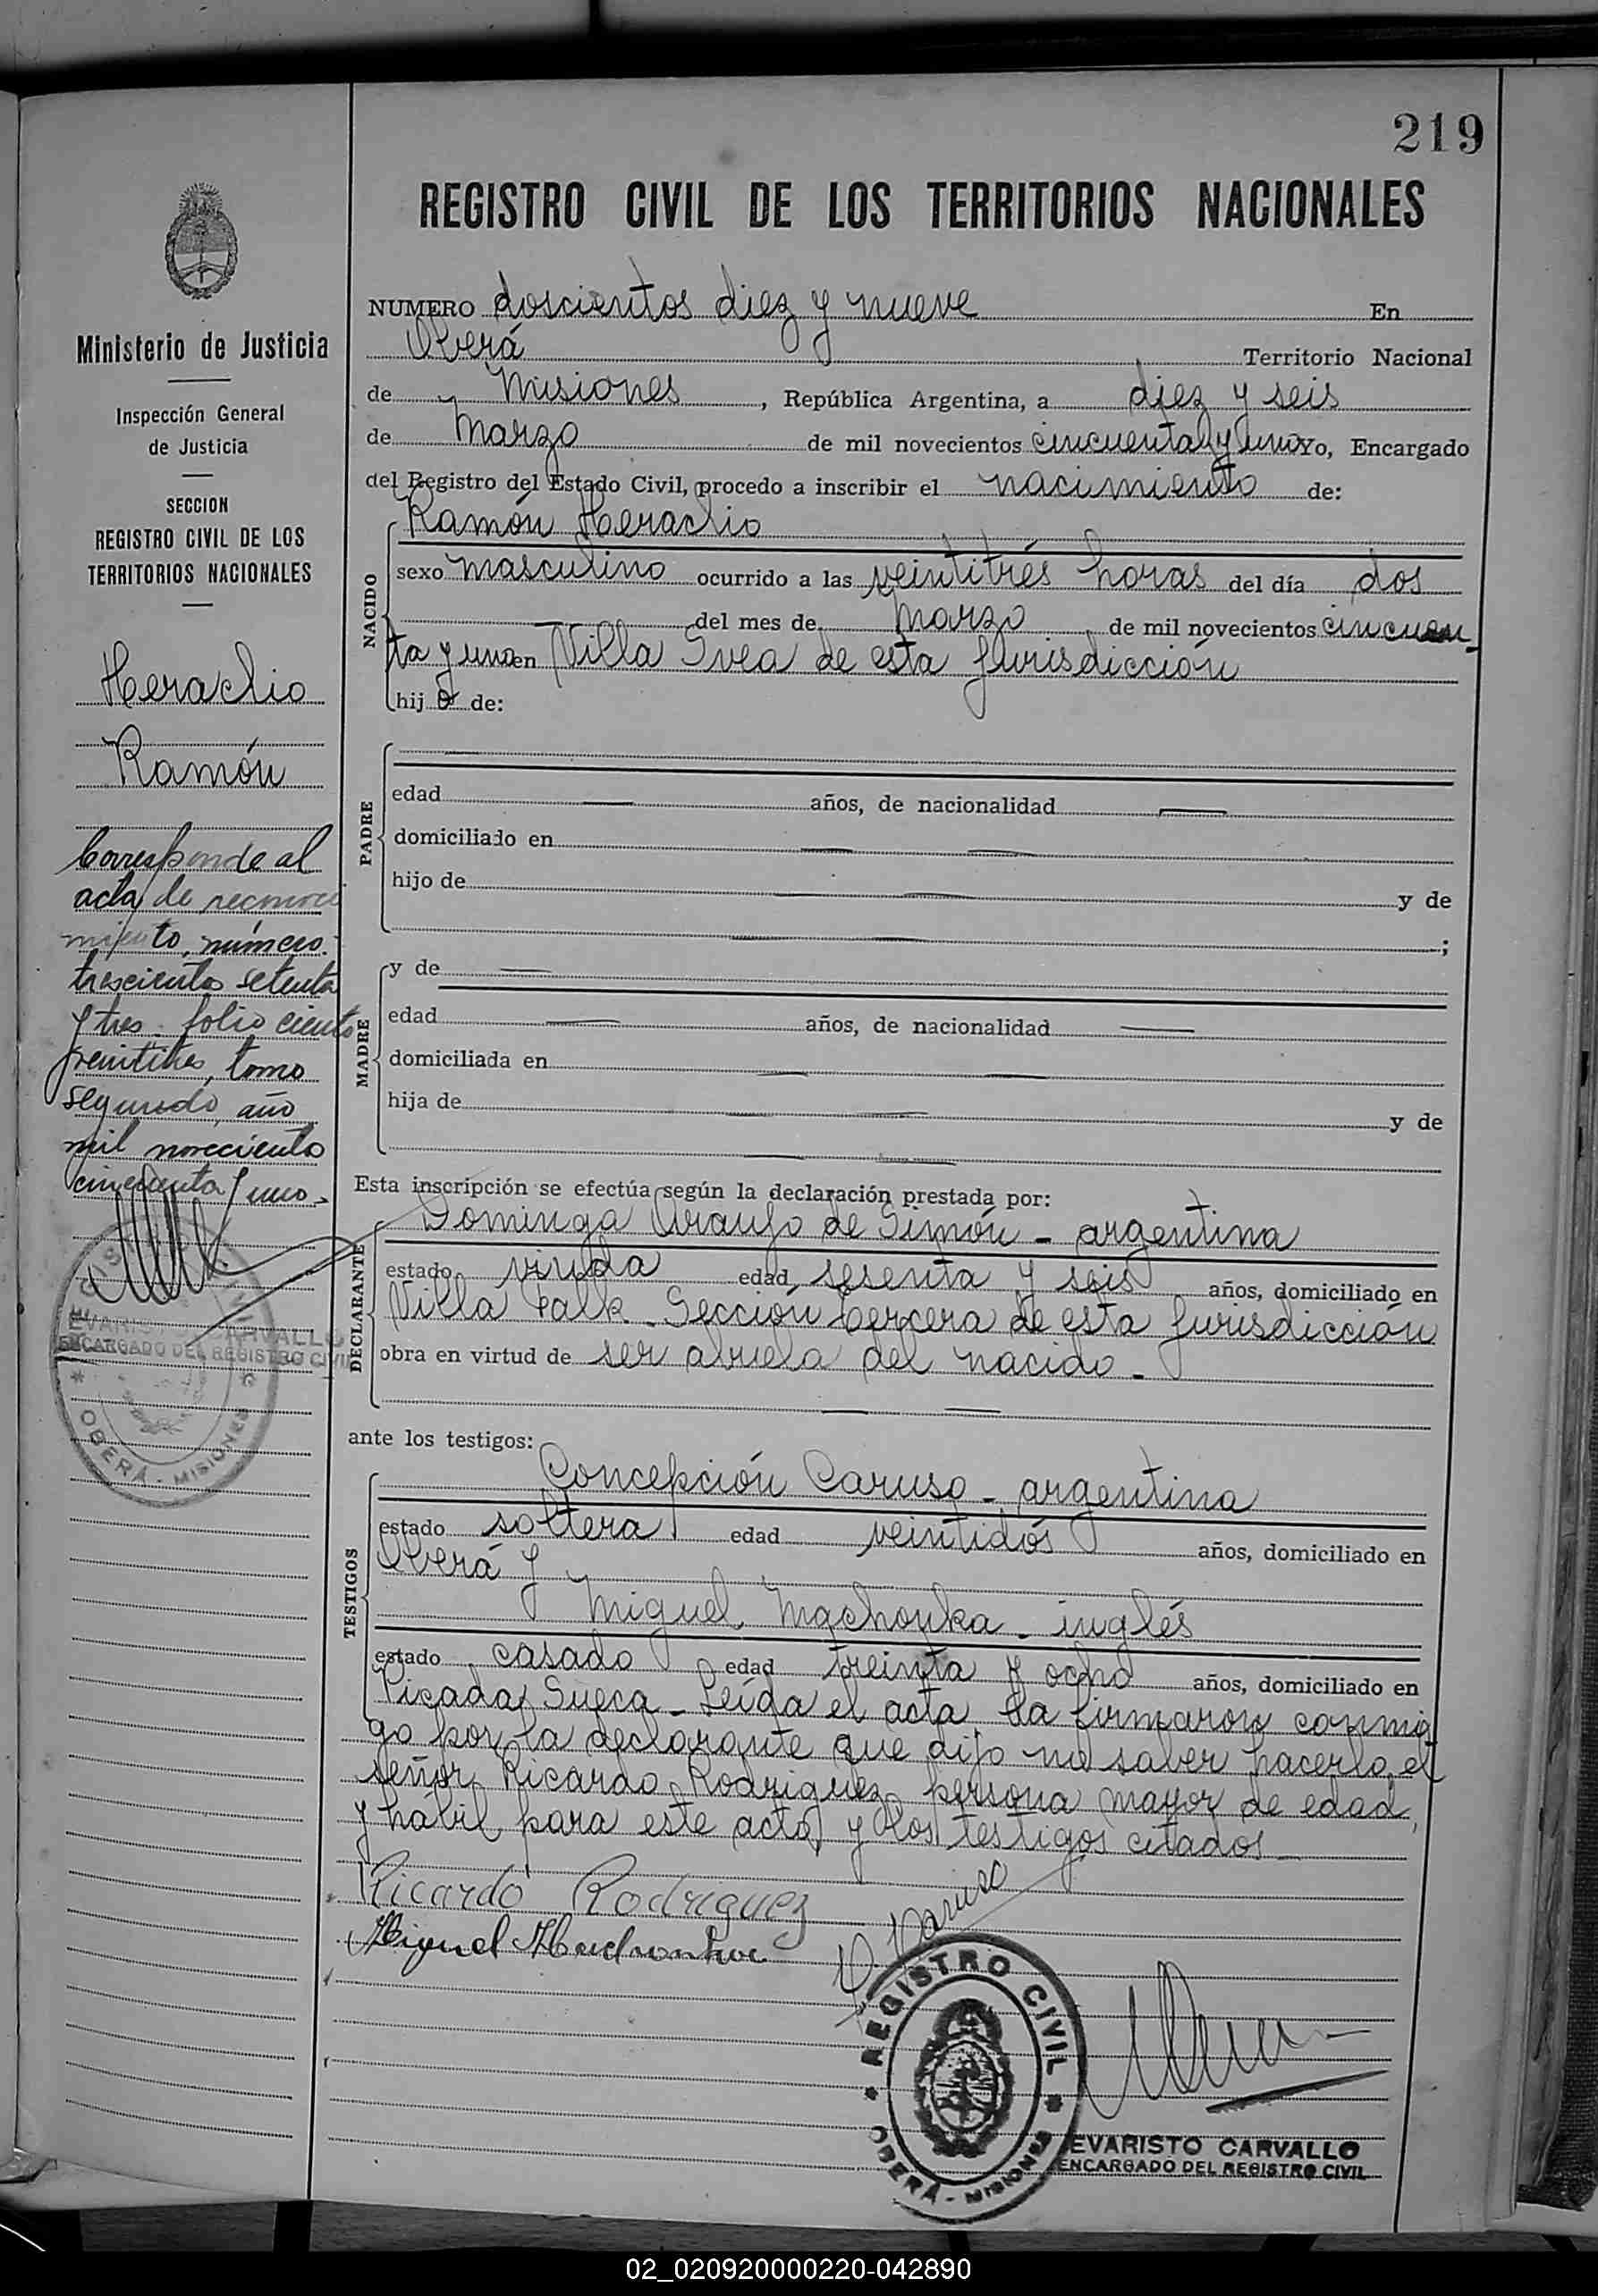 219
REGISTRO CIVIL DE LOS TERRITORIOS NACIONALES
Ministerio de Justicia
Inspección General
de Justicia
SECCION
REGISTRO CIVIL DE LOS
TERRITORIOS NACIONALES
Heraclio
Ramón
Corresponde al
acta de reconoci
miento, número
trescientos setenta
y tres. folio ciento
veintitres, tomo
segundo, año
mil novecientos
cincuenta y uno.
EVARISTO CARVALLO
ENCARGADO DEL REGISTRO CIVIL
OBERÁ - MISIONES
NUMERO doscientos diez y nueve En
Oberá Territorio Nacional
de Misiones, República Argentina, a diez y seis
de Marzo de mil novecientos cincuenta y uno Yo, Encargado
del Registro del Estado Civil, procedo a inscribir el nacimiento de:
NACIDO
Ramón Heraclio
sexo masculino ocurrido a las veintitrés horas del día dos
del mes de Marzo de mil novecientos cincuen-
ta y uno en Villa Svea de esta jurisdicción
hijo de:
PADRE
edad años, de nacionalidad
domiciliado en
hijo de y de
;
MADRE
y de
edad años, de nacionalidad
domiciliada en
hija de y de
Esta inscripción se efectúa según la declaración prestada por:
DECLARANTE
Dominga Araujo de Simón - argentina
estado viuda edad sesenta y seis años, domiciliado en
Villa Falk - Sección tercera de esta jurisdicción
obra en virtud de ser abuela del nacido -
ante los testigos:
TESTIGOS
Concepción Caruso - argentina
estado soltera edad veintidós años, domiciliado en
Oberá y
Miguel Machonka - inglés
estado casado edad treinta y ocho años, domiciliado en
Picada Sueca - Leída el acta la firmaron conmi
go por la declarante que dijo no saber hacerlo, el
señor Ricardo Rodriguez, persona mayor de edad,
y hábil para este acto, y los testigos citados -
Ricardo Rodriguez
C. Caruso
Miguel Machonka
REGISTRO CIVIL
OBERÁ - MISIONES
EVARISTO CARVALLO
ENCARGADO DEL REGISTRO CIVIL
02_020920000220-042890